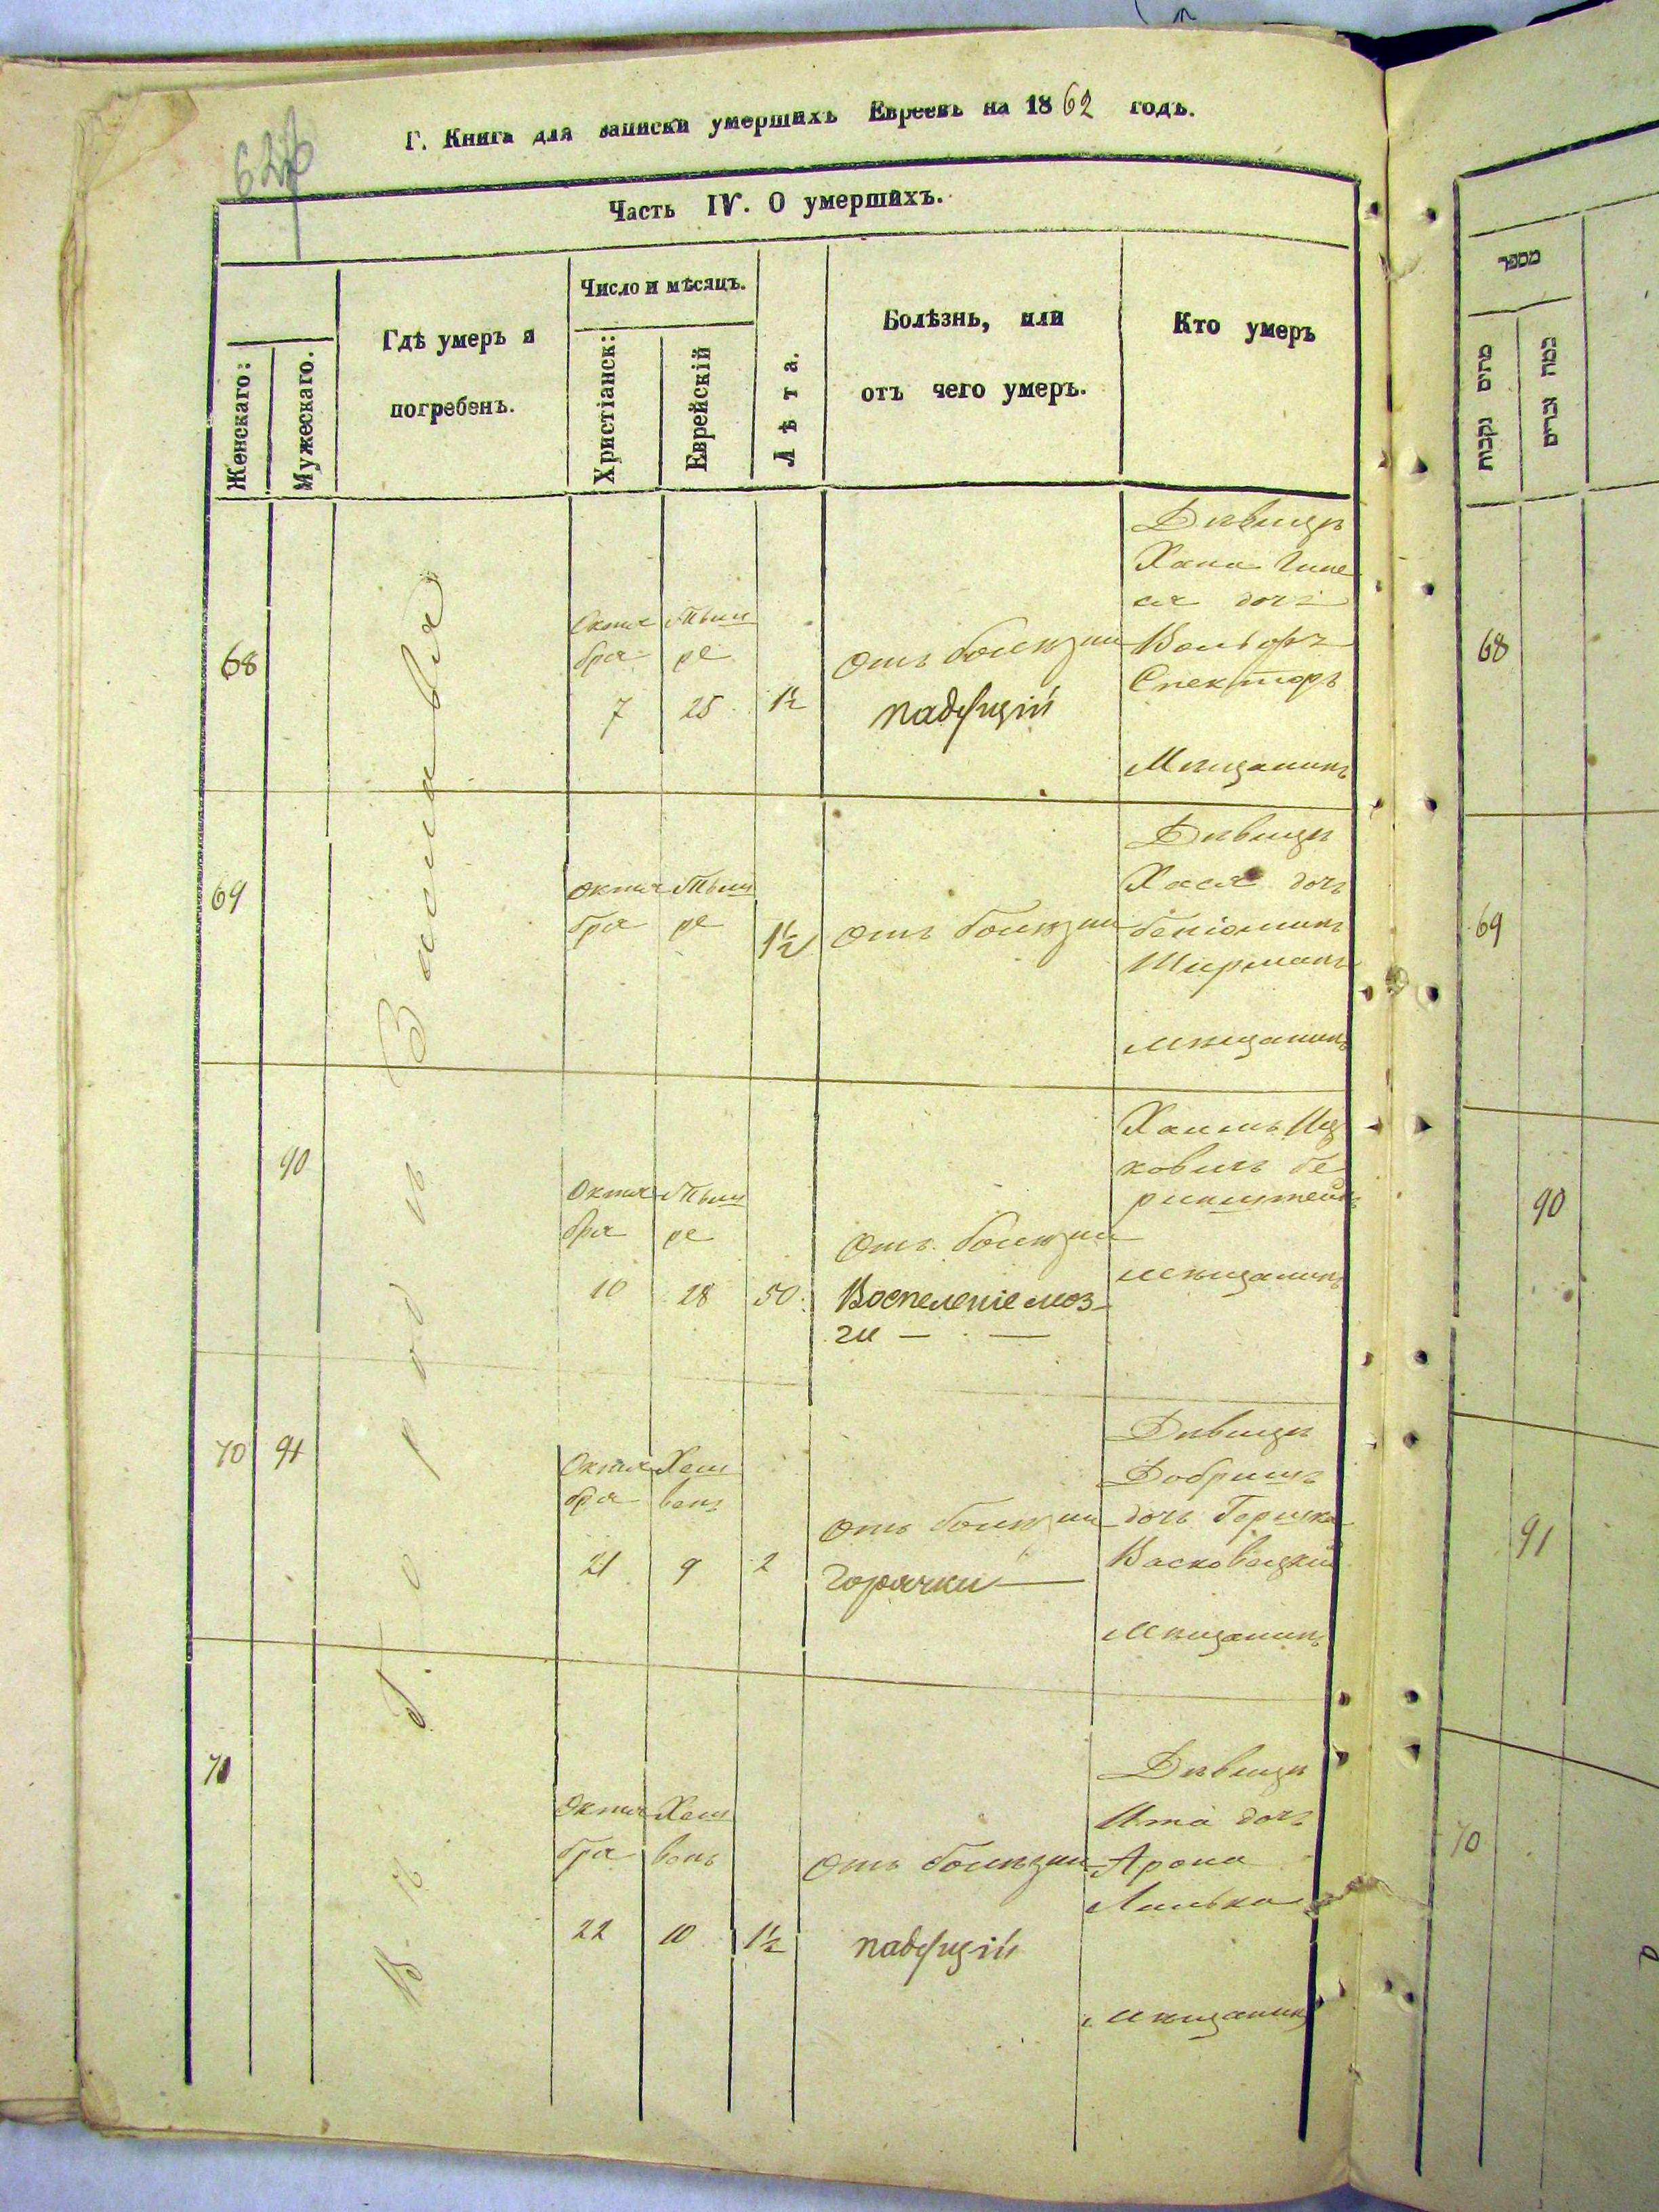 Г. Книга для записки умершихъ Евреевъ на 1862 годъ.
Часть IV. О умершихъ.
Женскаго:
Мужескаго.
Гдѣ умеръ и
погребенъ.
Число и мѣсяцъ.
Христіанск:
Еврейскій
Лѣта.
Болѣзнь, или
отъ чего умеръ.
Кто умеръ
Въ Городѣ Заславля
68
Октя
бря
7
Тыш
ре
25
1½
отъ болѣзни
падущій
Дѣвица
Хана Гине
ся дочь
Вольфъ
Спекторъ
Мѣщанинъ
69
Октя
бря
Тыш
ре
1½
отъ болѣзни
Дѣвица
Хася дочь
беніоминъ
Ширманъ
мѣщанинъ
90
Октя
бря
10
Тыш
ре
28
50
отъ болѣзни
Воспеленіе моз-
ги
Хаимъ Иц
ковичъ бе
ринштейнъ
мѣщанинъ
70
91
Октя
бря
21
Хеш
вень
9
2
отъ болѣзни
горячки
Дѣвица
Добришъ
дочь Гершка
Васковецкій
Мѣщанинъ
71
Октя
бря
22
Хеш
вонь
10
1½
отъ болѣзни
падущій
Дѣвица
Ита дочь
Арона
мѣщанинъ
מספר
מתים נקבות
כמה זכרים
68
69
90
91
70